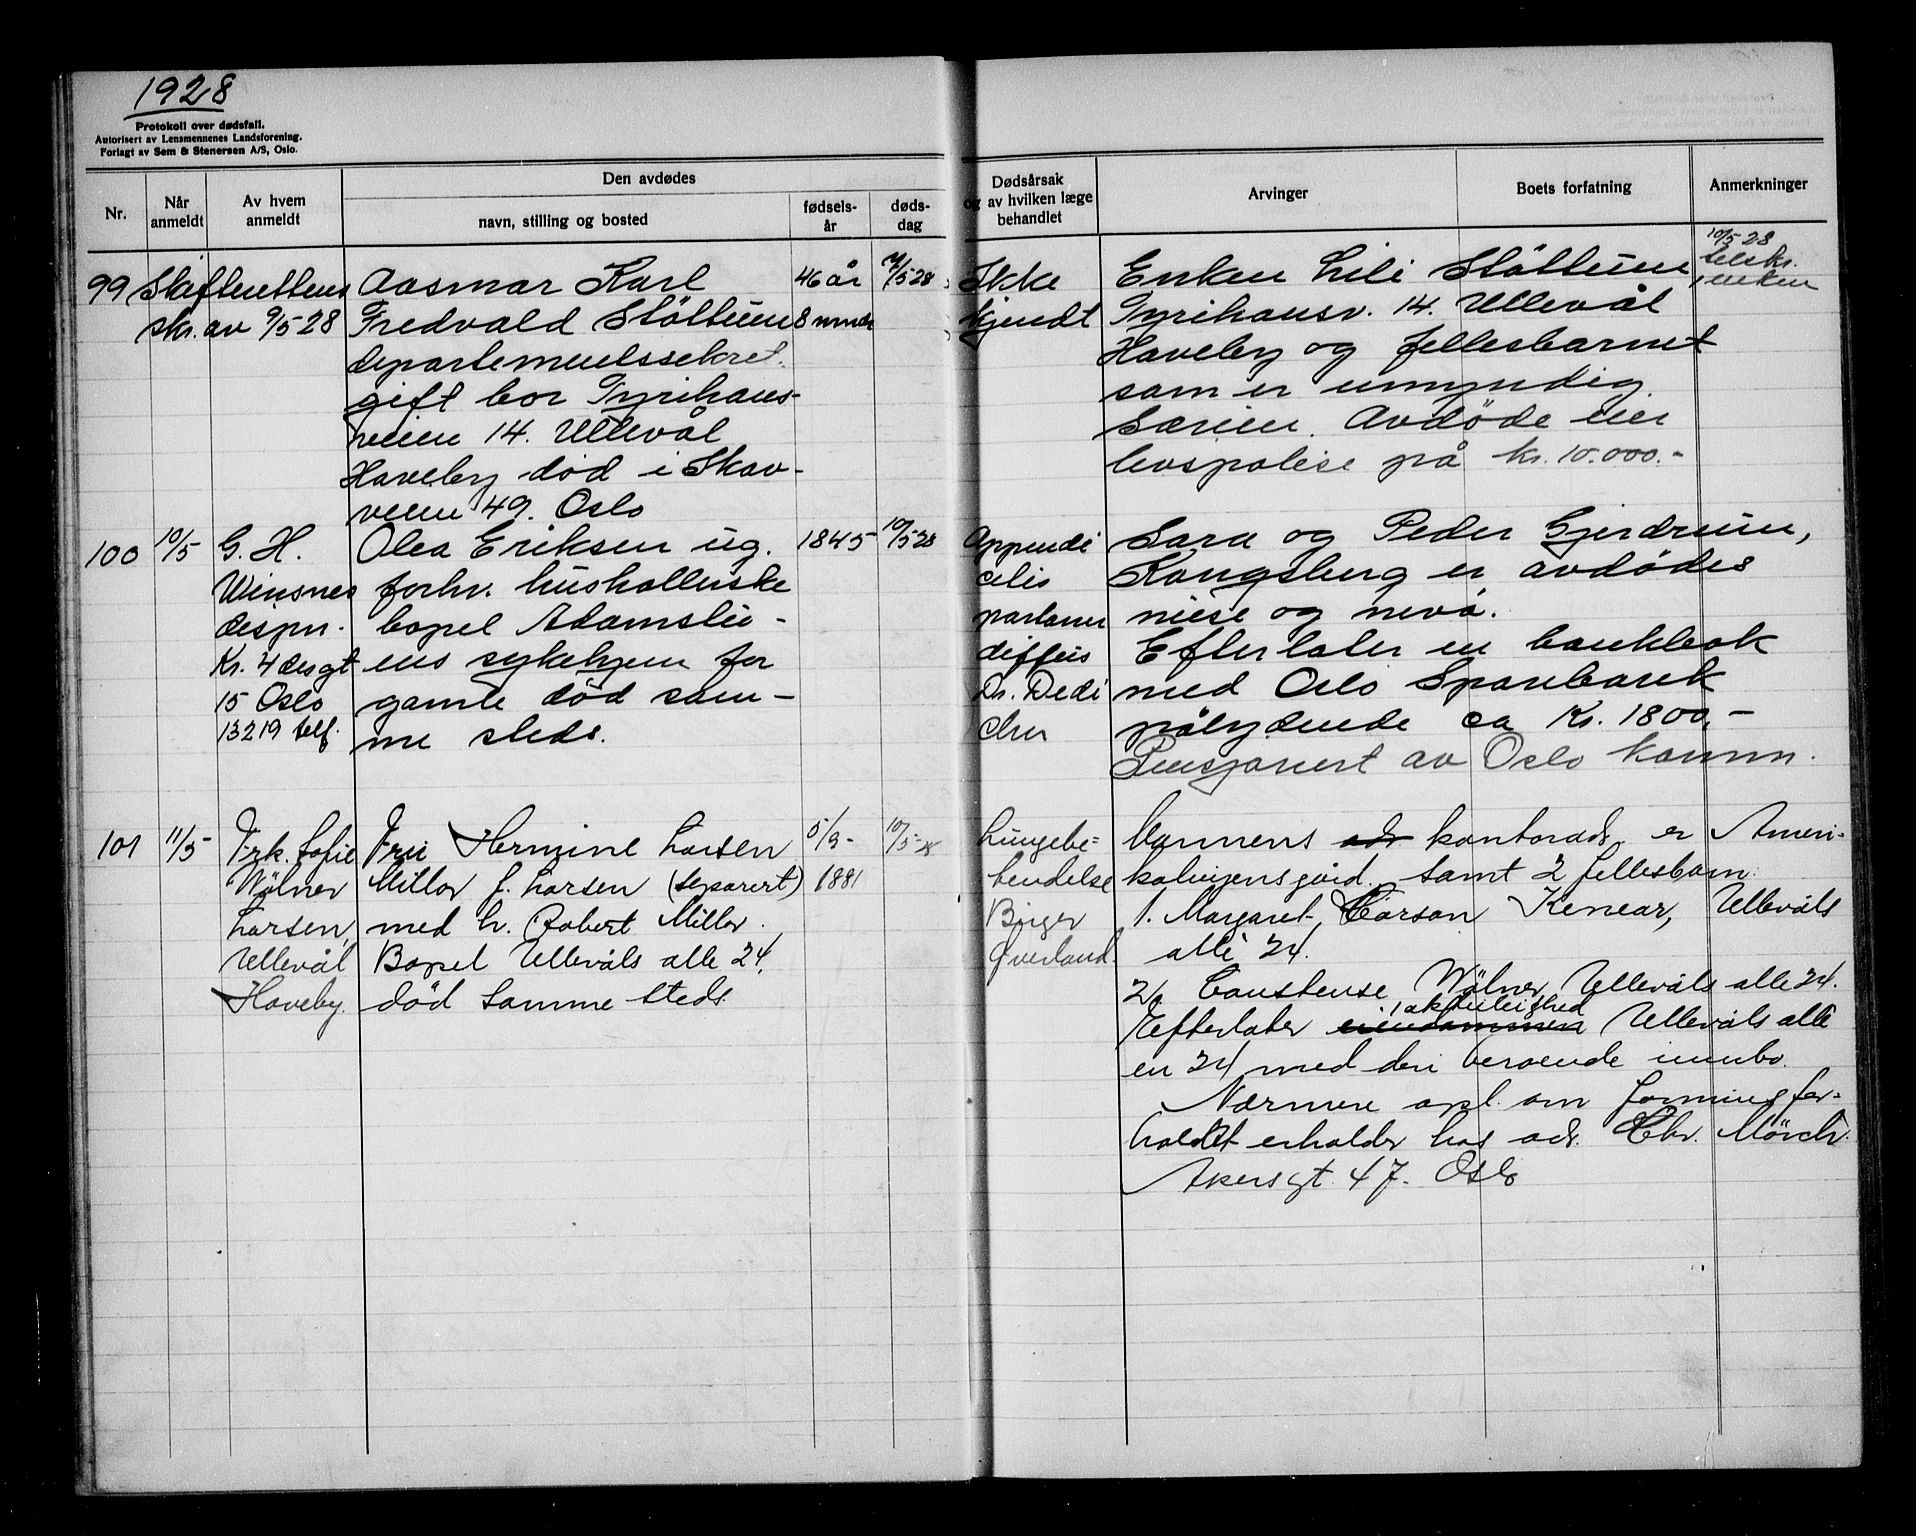 1928
Protokoll over dødsfall.
Autorisert av Lensmennenes Landsforening.
Forlagt av Sem & Stenersen A/S, Oslo.
Nr.
Når
anmeldt
Av hvem
anmeldt
Den avdødes
navn, stilling og bosted
fødsels-
år
døds-
dag
Dødsårsak
og av hvilken læge
behandlet
Arvinger
Boets forfatning
Anmerkninger
99
Skifterettens
skr. av 9/5 28
Aasmar Karl
Fredvald Slöttum
departementssekret.
gift bor Tyrihans-
veien 14. Ullevål
Haveby död i Skov-
veien 49. Oslo
46 år
8 mndr
/5 28
Ikke
kjendt
Enken Lili Slöttum
Tyrihansv. 14. Ullevål
Haveby og fellesbarnet
som er umyndig
Særeie. Avdöde eier
livspolise på kr. 10.000.-
10/5 28
enken
100
10/5
G. H.
Winsnes
dispn.
Kr. 4 desgt
15 Oslo
13219 telf.
Olea Eriksen ug.
forhv. husholderske
bopel Adamstu-
ens sykehjem for
gamle död sam-
me steds.
1845
10/5 28
Appendi
citis
diffus
Dr. Dedi
chen
Sara og Peder Gjerdrum,
Kongsberg er avdödes
niese og nevö.
Efterlater en bankbok
med Oslo Sparebank
pålydende ca Kr. 1800,-
Pensjonert av Oslo komm.
101
11/5
Frk. Sofie
Wölner
Larsen,
Ullevål
Haveby.
Fru Hermine Larsen
Millar f. Larsen (separert)
med hr. Robert Millar.
Bopel Ullevåls alle 24,
död samme sted.
5/9-
1881
10/5-28
Lungebe-
tendelse
Birger
Øverland.
mannens adr kontoradr. er Ameri-
kalinjens gård. samt 2 fellesbarn:
1. Margaret Carson Ullevåls
alle 24.
2. Constense Wölner Ullevåls alle 24.
i aktieleilighed
Efterlater eiendommen Ullevåls alle
en 24 med den beroende innbo.
Nærmere opl. om formuesfor-
holdet erholdes hos adv. Chr. Mörch.
Akersgt. 47. Oslo